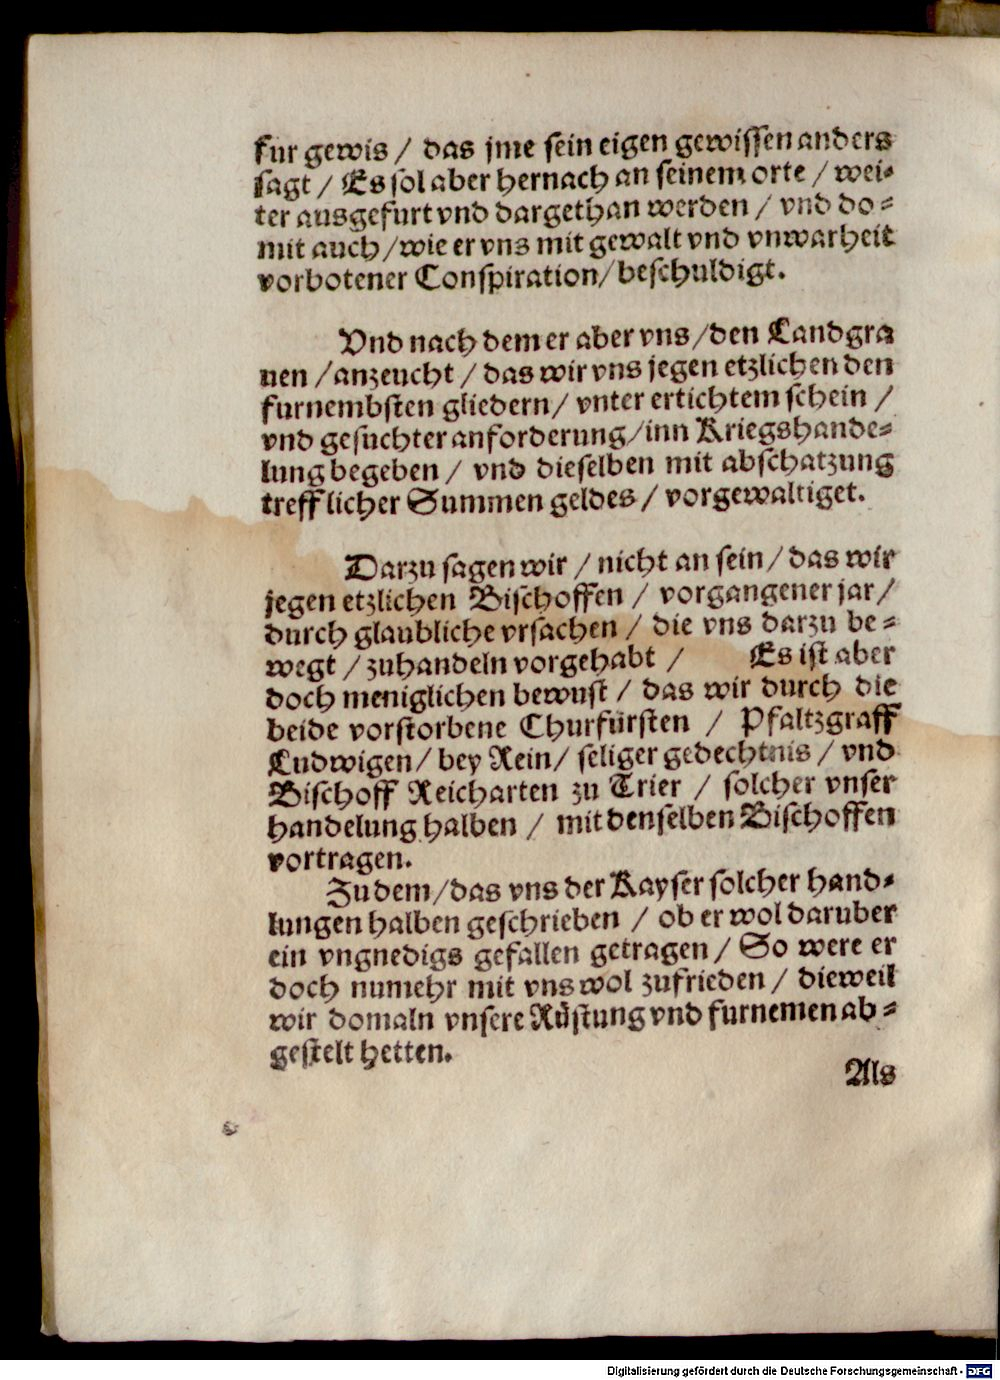 fur gewis / das jme sein eigen gewissen anders
sagt / Es sol aber hernach an seinem orte / wei-
ter ausgefurt vnd dargethan werden / vnd do-
mit auch / wie er vns mit gewalt vnd vnwarheit
vorbotener Conspiration / beschuldigt.
Vnd nach dem er aber vns / den Landgra
uen / anzeucht / das wir vns jegen etzlichen den
furnembsten gliedern / vnter ertichtem schein /
vnd gesuchter anforderung / inn Kriegshande-
lung begeben / vnd dieselben mit abschatzung
trefflicher Summen geldes / vorgewaltiget.
Darzu sagen wir / nicht an sein / das wir
jegen etzlichen Bischoffen / vorgangener jar /
durch glaubliche vrsachen / die vns darzu be-
wegt / zuhandeln vorgehabt / Es ist aber
doch meniglichen bewust / das wir durch die
beide vorstorbene Churfürsten / Pfaltzgraff
Ludwigen / bey Rein / seliger gedechtnis / vnd
Bischoff Reicharten zu Trier / solcher vnser
handelung halben / mit denselben Bischoffen
vortragen.
Zu dem / das vns der Kayser solcher hand-
lungen halben geschrieben / ob er wol daruber
ein vngnedigs gefallen getragen / So were er
doch numehr mit vns wol zufrieden / dieweil
wir domaln vnsere Rüstung vnd furnemen ab-
gestelt hetten.
Als
Digitalisierung gefördert durch die Deutsche Forschungsgemeinschaft - DFG